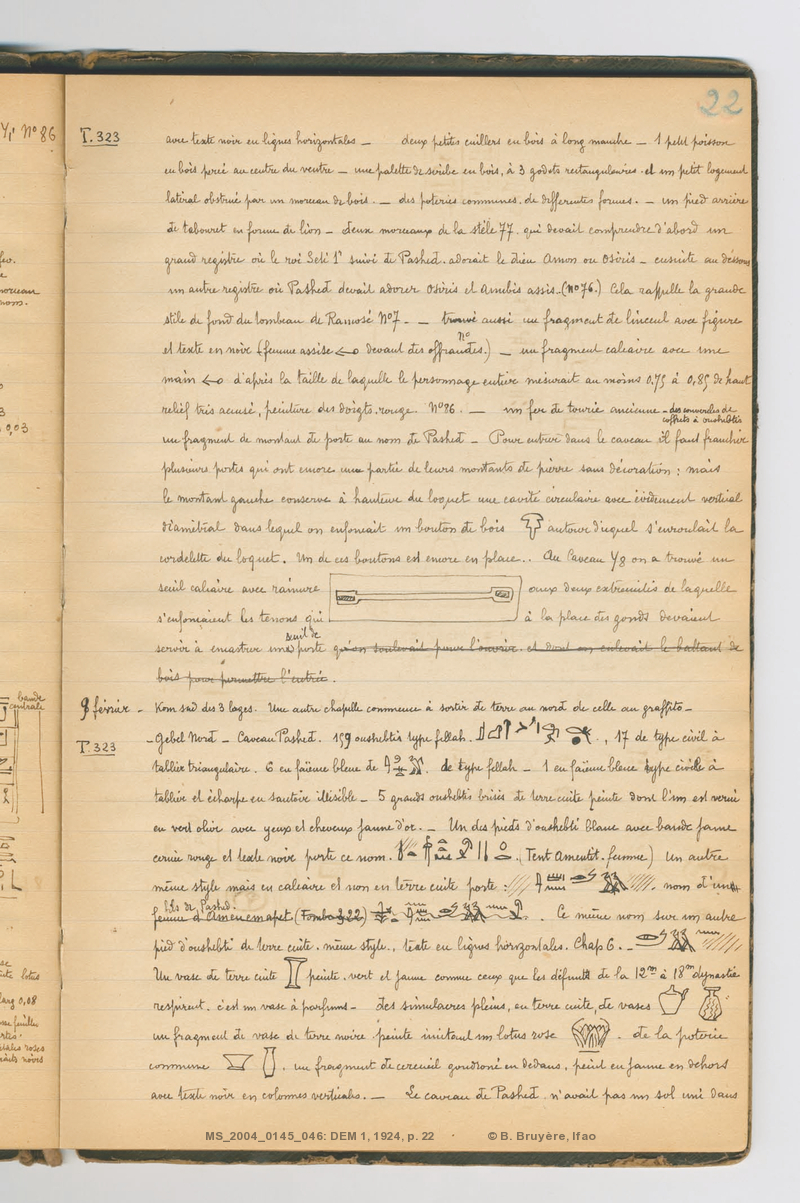 22
Y, N° 86
T. 323
avec texte noir en lignes horizontales — deux petites cuillers en bois à long manche — 1 petit poisson
en bois percé au centre du ventre — une palette de scribe en bois, à 3 godets rectangulaires et un petit logement
latéral obstrué par un morceau de bois. — des poteries communes, de differentes formes. — un pied arrière
de tabouret en forme de lion — deux morceaux de la stèle 77. qui devait comprendre d'abord un
grand registre où le roi Seti 1er suivi de Pashed. adorait le dieu Amon ou Osiris — ensuite au dessous
un autre registre où Pashed devait adorer Osiris et Anubis assis. (N° 76.) Cela rappelle la grande
stèle de fond du tombeau de Ramosé N° 7. — trouvé aussi un fragment de linceul avec figure
et texte en noir (femme assise devant des offrandes.) — un fragment calcaire avec une
N°
main d'après la taille de laquelle le personnage entier mesurait au moins 0.75 à 0,85 de haut
relief très accusé, peinture des doigts rouge. N° 86. — un fer de tourie ancienne — des couvercles de
coffrets à oushebtis
un fragment de montant de porte au nom de Pashed — Pour entrer dans le caveau il faut franchir
plusieurs portes qui ont encore une partie de leurs montants de pierre sans décoration ; mais
le montant gauche conserve à hauteur du loquet une cavité circulaire avec évidement vertical
diamétral dans lequel on enfonçait un bouton de bois autour duquel s'enroulait la
cordelette du loquet. Un de ces boutons est encore en place.. Au Caveau Y8 on a trouvé un
seuil calcaire avec rainure aux deux extremités de laquelle
s'enfonçaient les tenons qui à la place des gonds devaient
seuil de
servir à encastrer une porte qu'on soulevait pour l'ouvrir. et dont on enlevait le battant de
bois pour permettre l'entrée.
9 février - Kom sud des 3 loges. Une autre chapelle commence à sortir de terre au nord de celle au graffito —
T. 323
— Gebel Nord — Caveau Pashed. 159 oushebtis type fellah. , 17 de type civil à
tablier triangulaire. 6 en faïence bleue de . de type fellah — 1 en faïence bleue type civil à
tablier et écharpe en sautoir illisible — 5 grands oushebtis brisés de terre cuite peinte dont l'un est verni
en vert olive avec yeux et cheveux jaune d'or. — Un des pieds d'oushebti blanc avec bande jaune
cernée rouge et texte noir porte ce nom. (Tent Amentit. femme) Un autre
même style mais en calcaire et non en terre cuite porte : . nom d'un
fils de Pashed.
femme d'Amenemapet (Tombe 22) . Ce même nom sur un autre
pied d'oushebti de terre cuite. même style, texte en lignes horizontales. Chap 6. —
Un vase de terre cuite peinte. vert et jaune comme ceux que les défunts de la 12me à 18me dynastie
respirent. c'est un vase à parfums — des simulacres pleins, en terre cuite, de vases
un fragment de vase de terre noire peinte imitant un lotus rose . de la poterie
commune . un fragment de cercueil goudronné en dedans, peint en jaune en dehors
avec texte noir en colonnes verticales. — Le caveau de Pashed n'avait pas un sol uni dans
0,03
bande
centrale
lotus
larg 0,08
MS_2004_0145_046: DEM 1, 1924, p. 22 · © B. Bruyère, Ifao